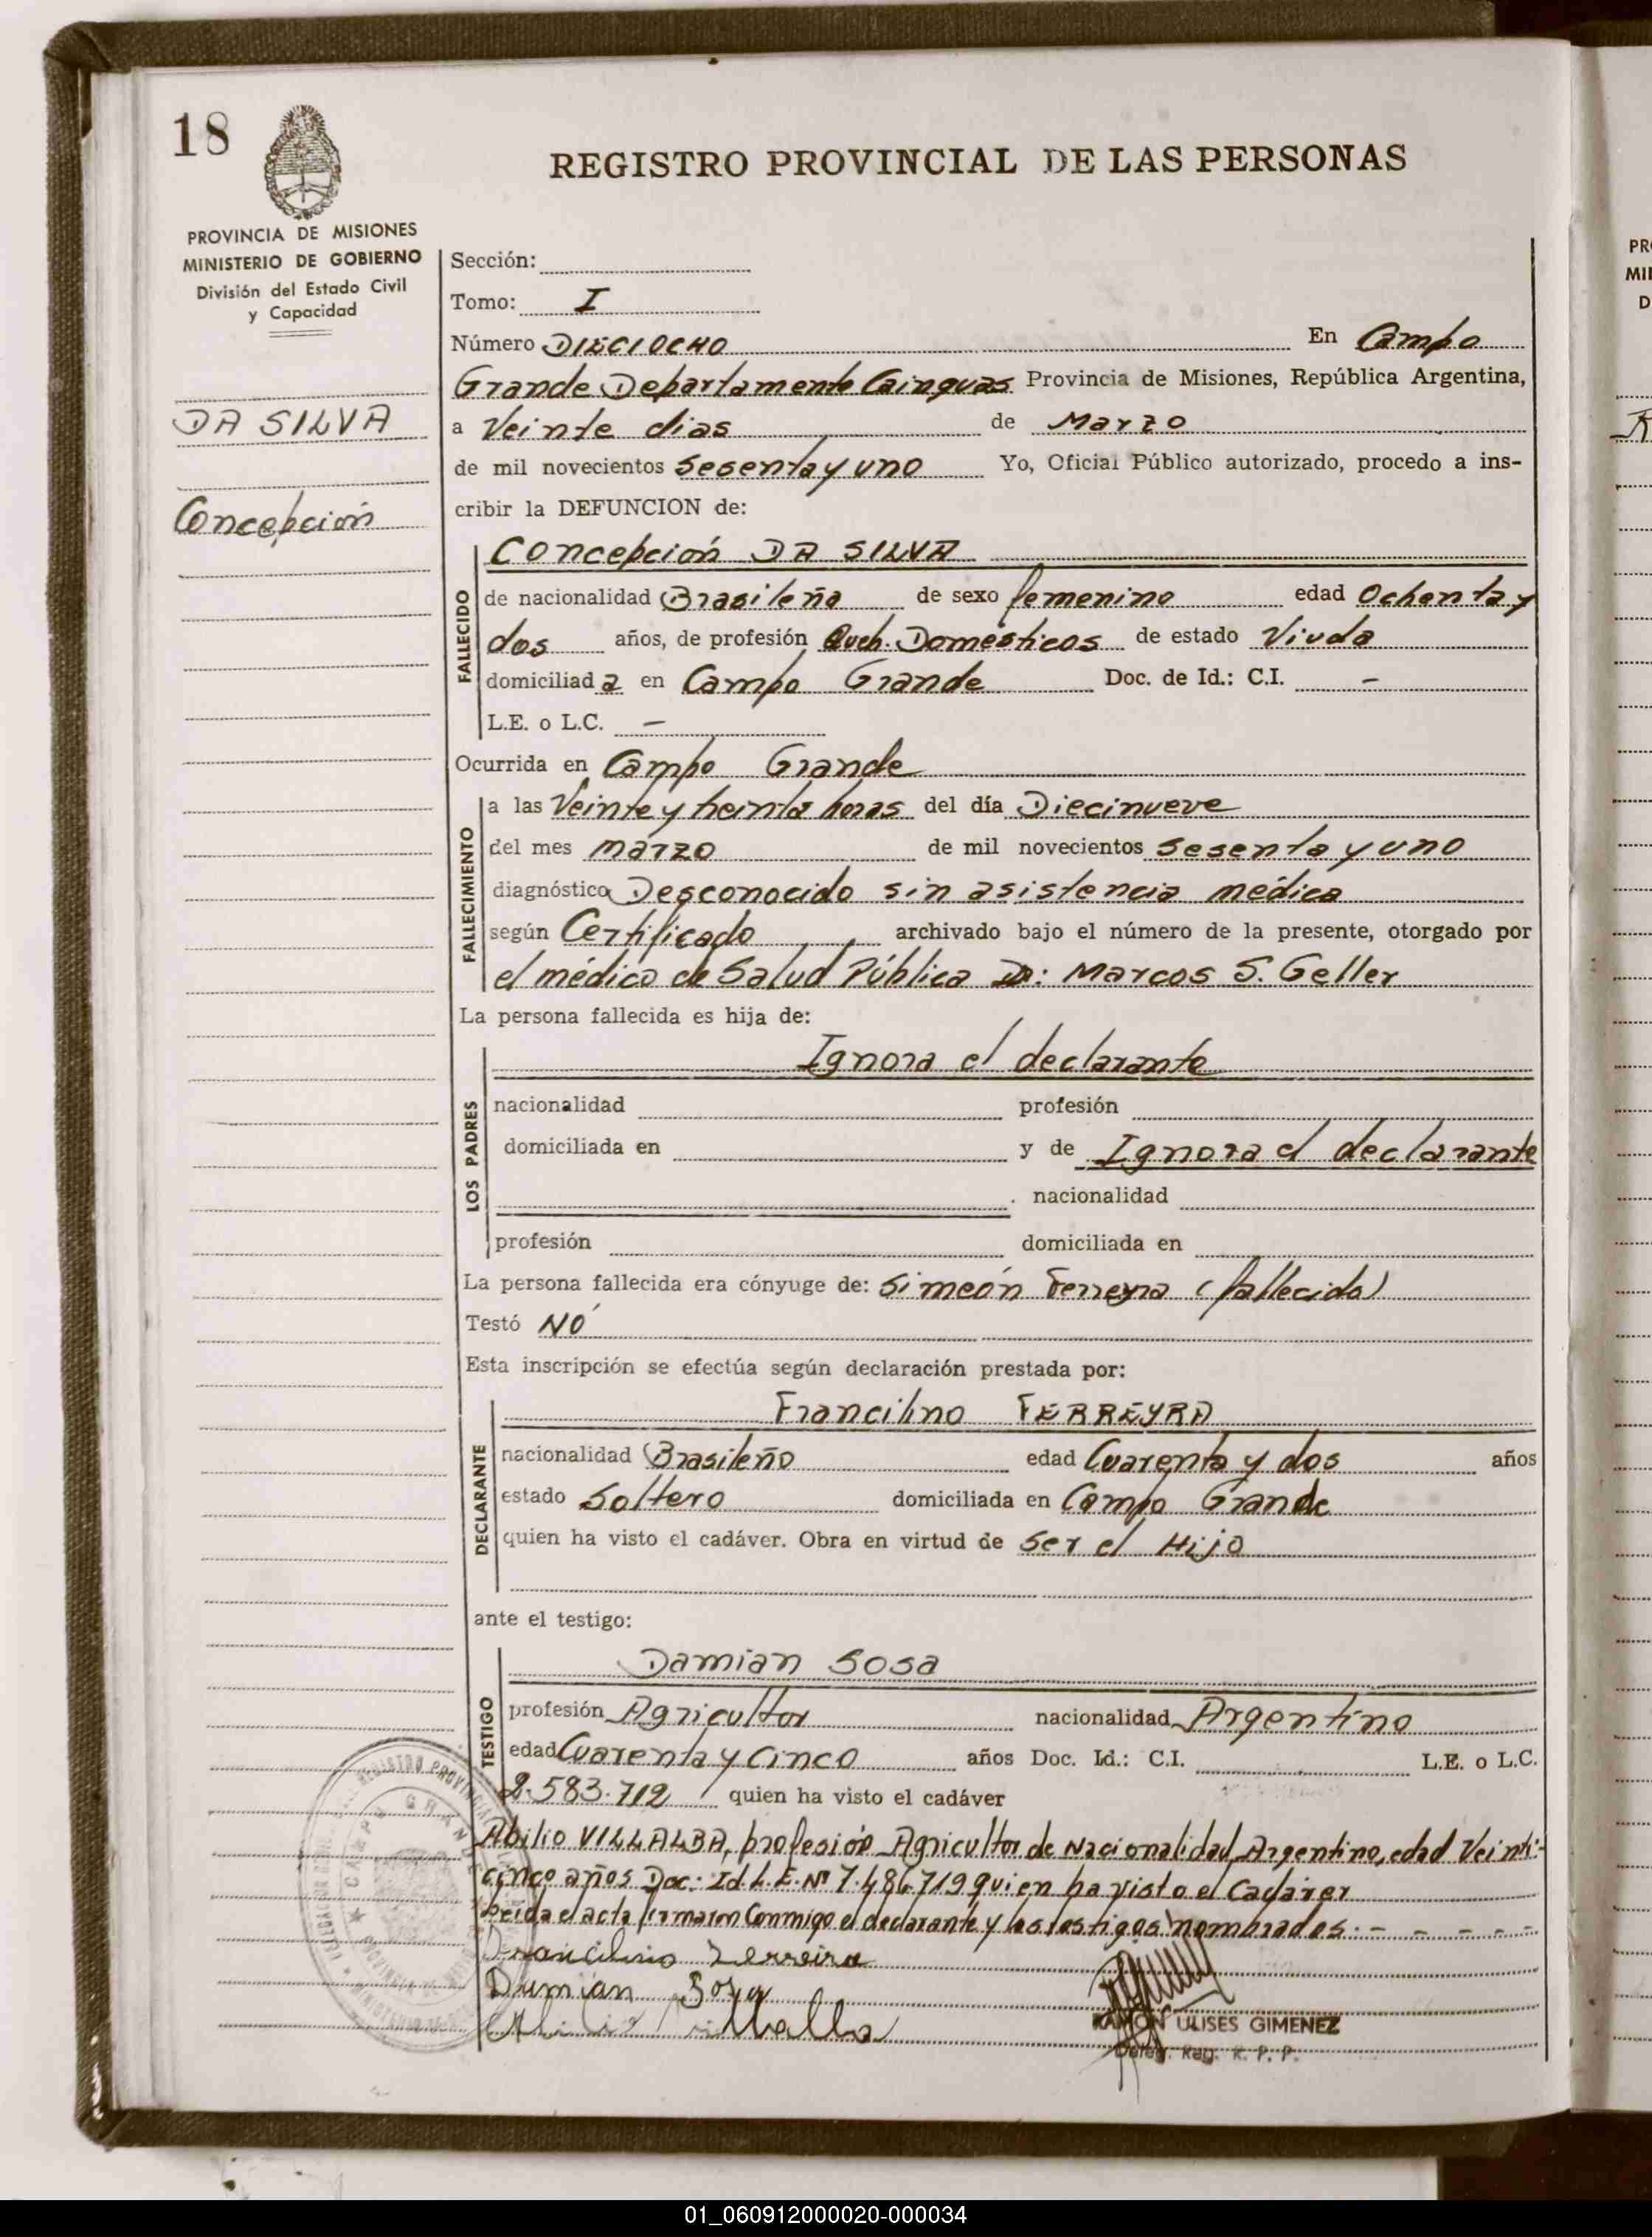 18
REGISTRO PROVINCIAL DE LAS PERSONAS
PROVINCIA DE MISIONES
MINISTERIO DE GOBIERNO
División del Estado Civil
y Capacidad
DA SILVA
Concepción
Sección:
Tomo: I
Número DIECIOCHO En Campo
Grande Departamento Cainguas Provincia de Misiones, República Argentina,
a Veinte dias de Marzo
de mil novecientos Sesenta y uno Yo, Oficial Público autorizado, procedo a ins-
cribir la DEFUNCION de:
FALLECIDO
Concepción DA SILVA
de nacionalidad Brasileña de sexo femenino edad Ochenta y
dos años, de profesión Queh. Domésticos de estado Viuda
domiciliad a en Campo Grande Doc. de Id.: C.I. -
L.E. o L.C. -
Ocurrida en Campo Grande
FALLECIMIENTO
a las Veinte y treinta horas del día Diecinueve
del mes Marzo de mil novecientos Sesenta y uno
diagnóstico Desconocido sin asistencia médica
según Certificado archivado bajo el número de la presente, otorgado por
el médico de Salud Pública Dr: Marcos S. Geller
La persona fallecida es hija de:
LOS PADRES
Ignora el declarante
nacionalidad profesión
domiciliada en y de Ignora el declarante
nacionalidad
profesión domiciliada en
La persona fallecida era cónyuge de: Simeón Ferreyra (fallecido)
Testó NÓ
Esta inscripción se efectúa según declaración prestada por:
DECLARANTE
Francilino FERREYRA
nacionalidad Brasileño edad Cuarenta y dos años
estado Soltero domiciliada en Campo Grande
quien ha visto el cadáver. Obra en virtud de Ser el Hijo
ante el testigo:
TESTIGO
Damian Sosa
profesión Agricultor nacionalidad Argentino
edad Cuarenta y Cinco años Doc. Id.: C.I. L.E. o L.C.
2.583.712 quien ha visto el cadáver
Abilio VILLALBA, profesión Agricultor de Nacionalidad Argentino, edad Veinti-
cinco años Doc: Id. L.E. Nº 7.486.719 quien ha visto el Cadáver
Leida el acta firmaron Conmigo el declarante y los testigos nombrados.- - - - -
Francilino Ferreira
Damian Sosa
Abilio Villalba
RAMÓN ULISES GIMENEZ
Deleg. Reg. R. P. P.
REGISTRO PROVINCIAL
CAMPO GRANDE
01_060912000020-000034